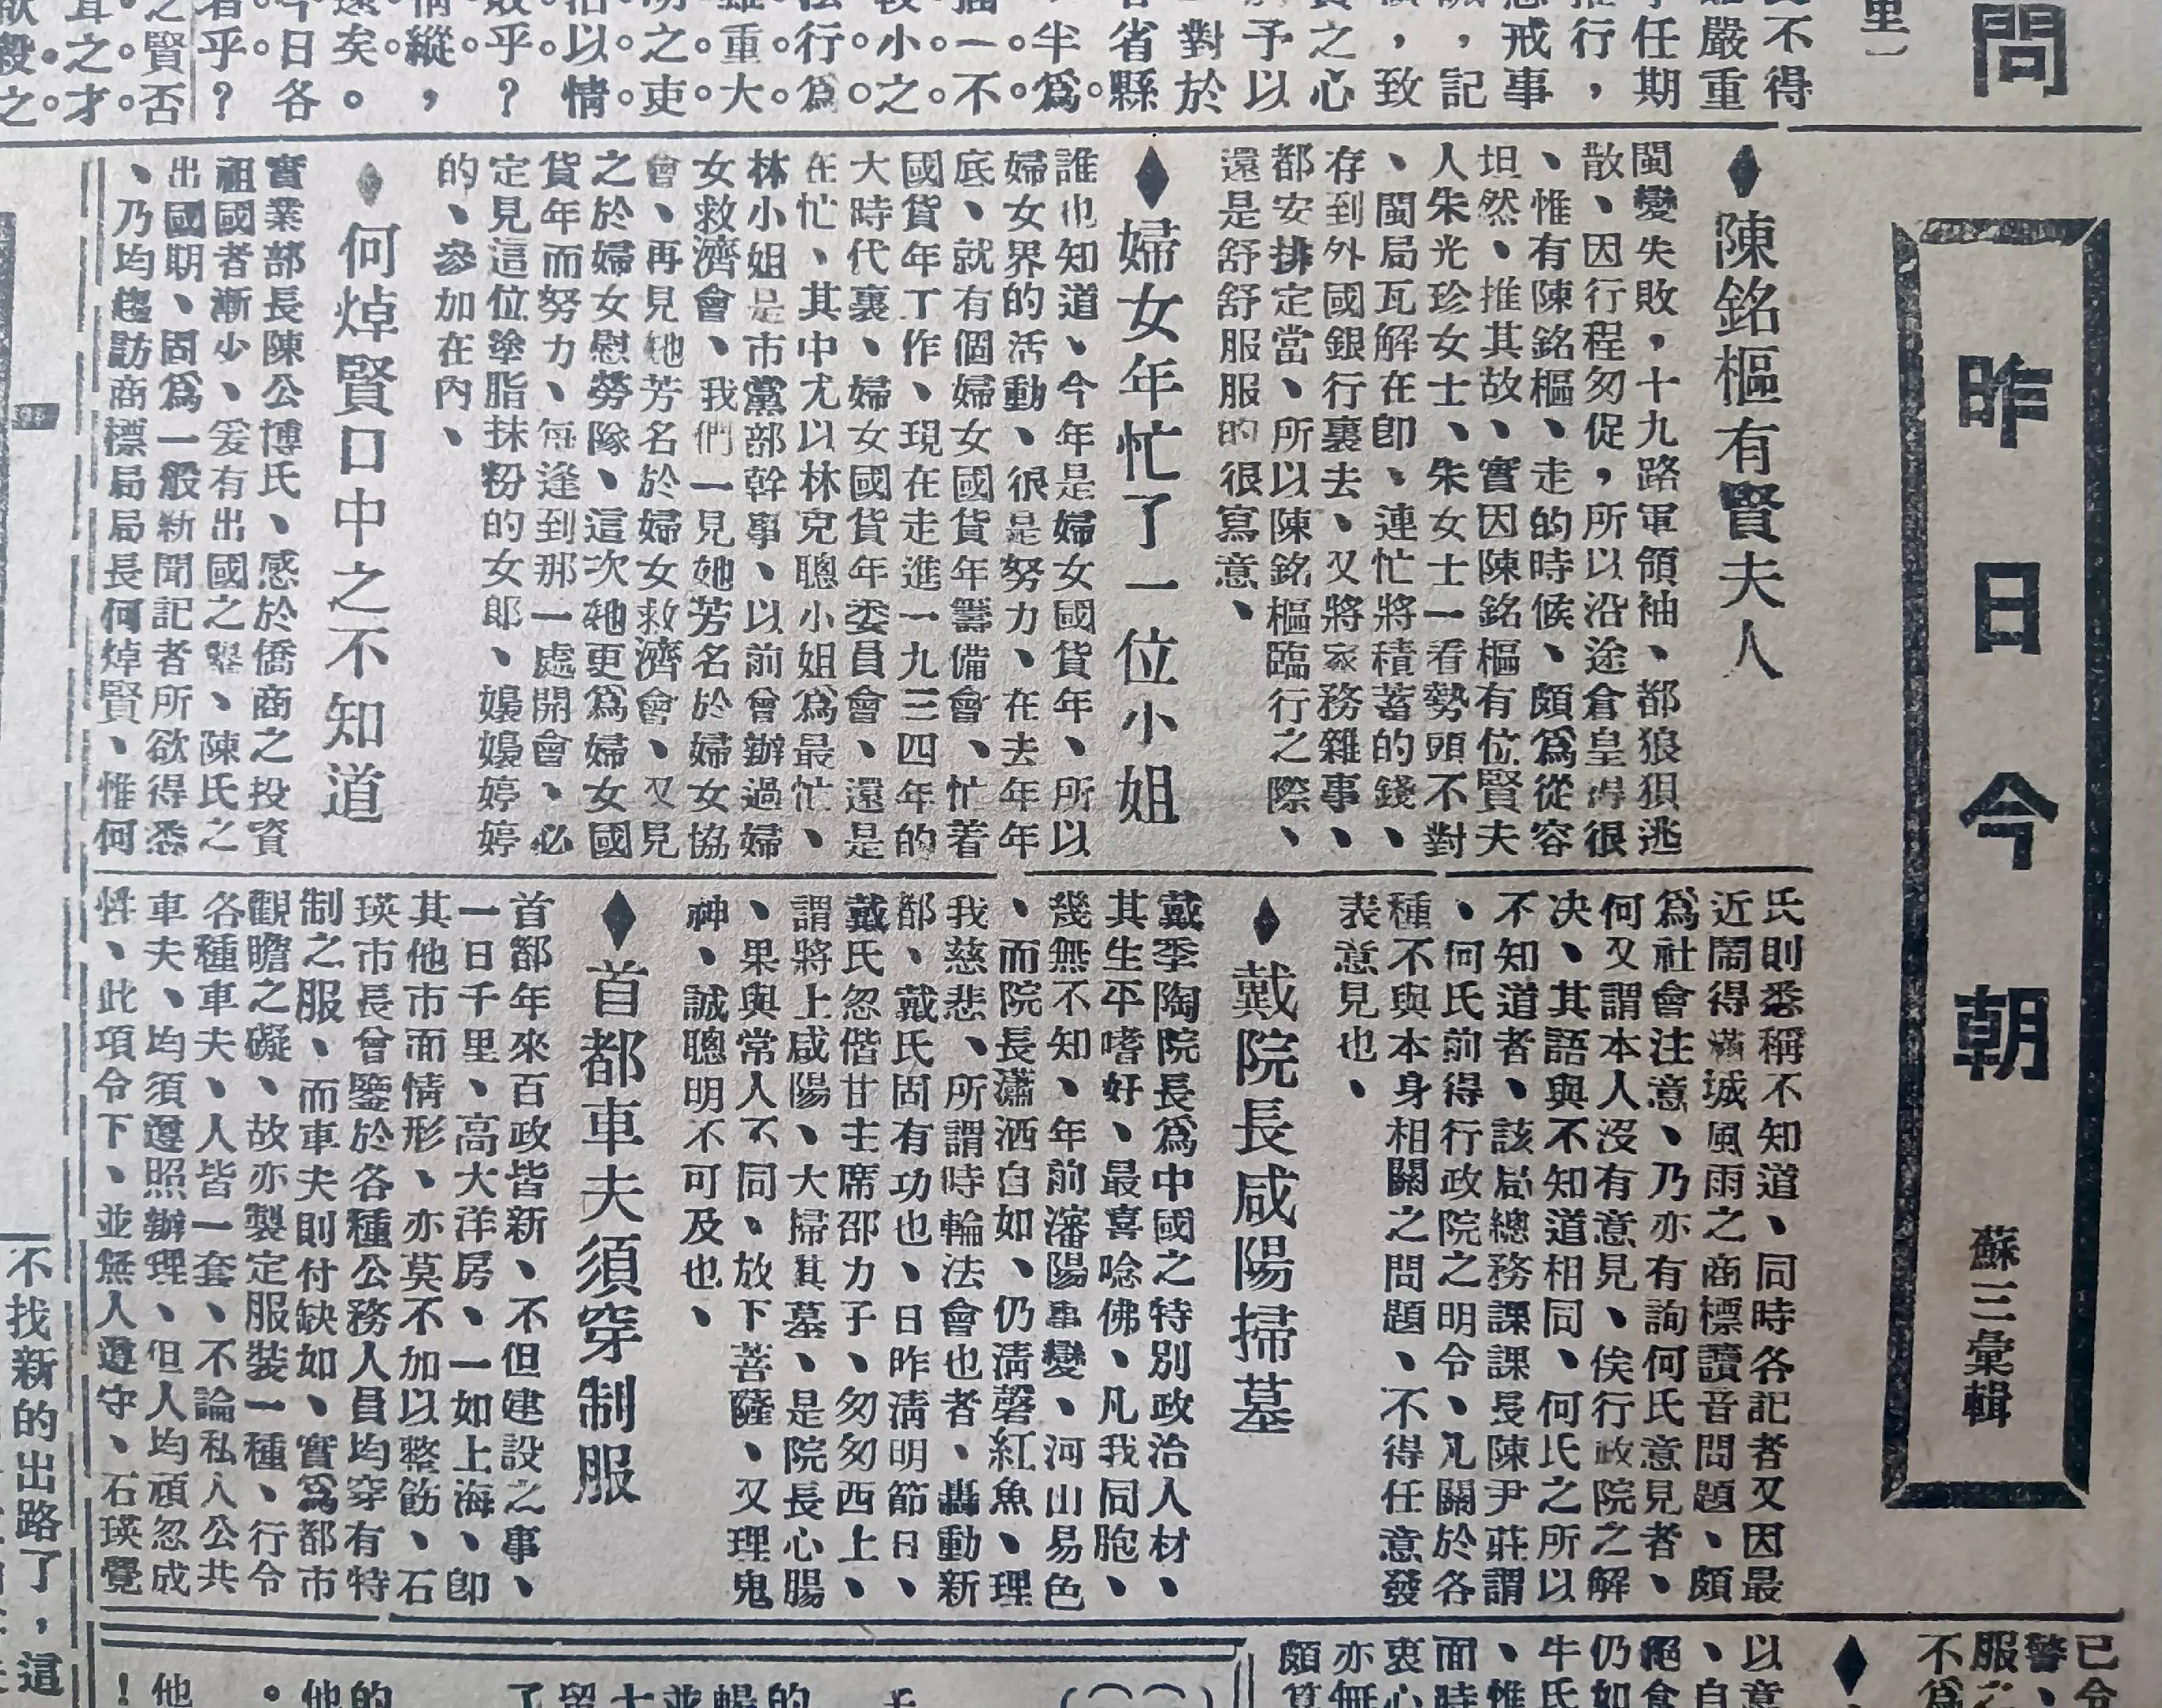 問
里）
不得
嚴重
任期
行，
戒事
，記
，致
之心
予以
對於
省縣
半爲
一不
小之
行爲
重大
之吏
以情
乎？
縱，
矣。
日各
乎？
之賢否
之才
昨日今朝
蘇三彙輯
陳銘樞有賢夫人
閩變失敗，十九路軍領袖、都狼狽逃
散、因行程匆促，所以沿途倉皇得很
、惟有陳銘樞、走的時候、頗爲從容
坦然、推其故、實因陳銘樞有位賢夫
人朱光珍女士、朱女士一看勢頭不對
、閩局瓦解在卽、連忙將積蓄的錢、
存到外國銀行裏去、又將家務雜事、
都安排定當、所以陳銘樞臨行之際、
還是舒舒服服的很寫意、
婦女年忙了一位小姐
誰也知道、今年是婦女國貨年、所以
婦女界的活動、很是努力、在去年年
底、就有個婦女國貨年籌備會、忙着
國貨年丁作、現在走進一九三四年的
大時代裏、婦女國貨年委員會、還是
在忙、其中尤以林克聰小姐爲最忙、
林小姐是市黨部幹事、以前曾辦過婦
女救濟會、我們一見她芳名於婦女協
會、再見她芳名於婦女救濟會、又見
之於婦女慰勞隊、這次她更爲婦女國
貨年而努力、每逢到那一處開會、必
定見這位塗脂抹粉的女郎、嬝嬝婷婷
的、參加在內、
何焯賢口中之不知道
實業部長陳公博氏、感於僑商之投資
祖國者漸少、爰有出國之擧、陳氏之
出國期、問爲一般新聞記者所欲得悉
、乃均趨訪商標局局長何焯賢、惟何
氏則悉稱不知道、同時各記者又因最
近鬧得滿城風雨之商標讀音問題、頗
爲社會注意、乃亦有詢何氏意見者、
何又謂本人沒有意見、俟行政院之解
决、其語與不知道相同、何氏之所以
不知道者、該局總務課課長陳尹莊謂
、何氏前得行政院之明令、凡關於各
種不與本身相關之問題、不得任意發
表意見也、
戴院長咸陽掃墓
戴季陶院長爲中國之特別政治人材、
其生平嗜好、最喜唸佛、凡我同胞、
幾無不知、年前瀋陽事變、河山易色
、而院長瀟洒自如、仍淸磬紅魚、理
我慈悲、所謂時輪法會也者、轟動新
都、戴氏固有功也、日昨淸明節日、
戴氏忽偕甘主席邵力子、匆匆西上、
謂將上咸陽、大掃其墓、是院長心腸
、果與常人不同、放下菩薩、又理鬼
神、誠聰明不可及也、
首都車夫須穿制服
首都年來百政皆新、不但建設之事、
一日千里、高大洋房、一如上海、卽
其他市面情形、亦莫不加以整飭、石
瑛市長曾鑒於各種公務人員均穿有特
制之服、而車夫則付缺如、實爲都市
觀瞻之礙、故亦製定服裝一種、行令
各種車夫、人皆一套、不論私人公共
車夫、均須遵照辦理、但人均頑忽成
性、此項令下、並無人遵守、石瑛覺
不找新的出路了，這